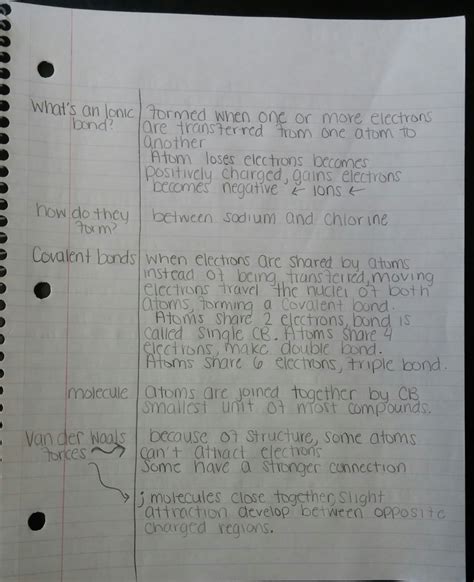 What's an Ionic bond? formed when one or more electrons
are transferred from one atom to
another
Atom loses electrons becomes
positively charged, gains electrons
becomes negative ← Ions ←
how do they form? between sodium and chlorine
Covalent bonds when electrons are shared by atoms
instead of being transferred, moving
electrons travel the nuclei of both
atoms, forming a Covalent bond.
Atoms share 2 electrons, bond is
called single CB. Atoms share 4
electrons, make double bond.
Atoms share 6 electrons, triple bond.
molecule atoms are joined together by CB
smallest unit of most compounds.
Van der Waals forces because of structure, some atoms
can't attract electrons
Some have a stronger connection
; molecules close together, slight
attraction develop between opposite
charged regions.